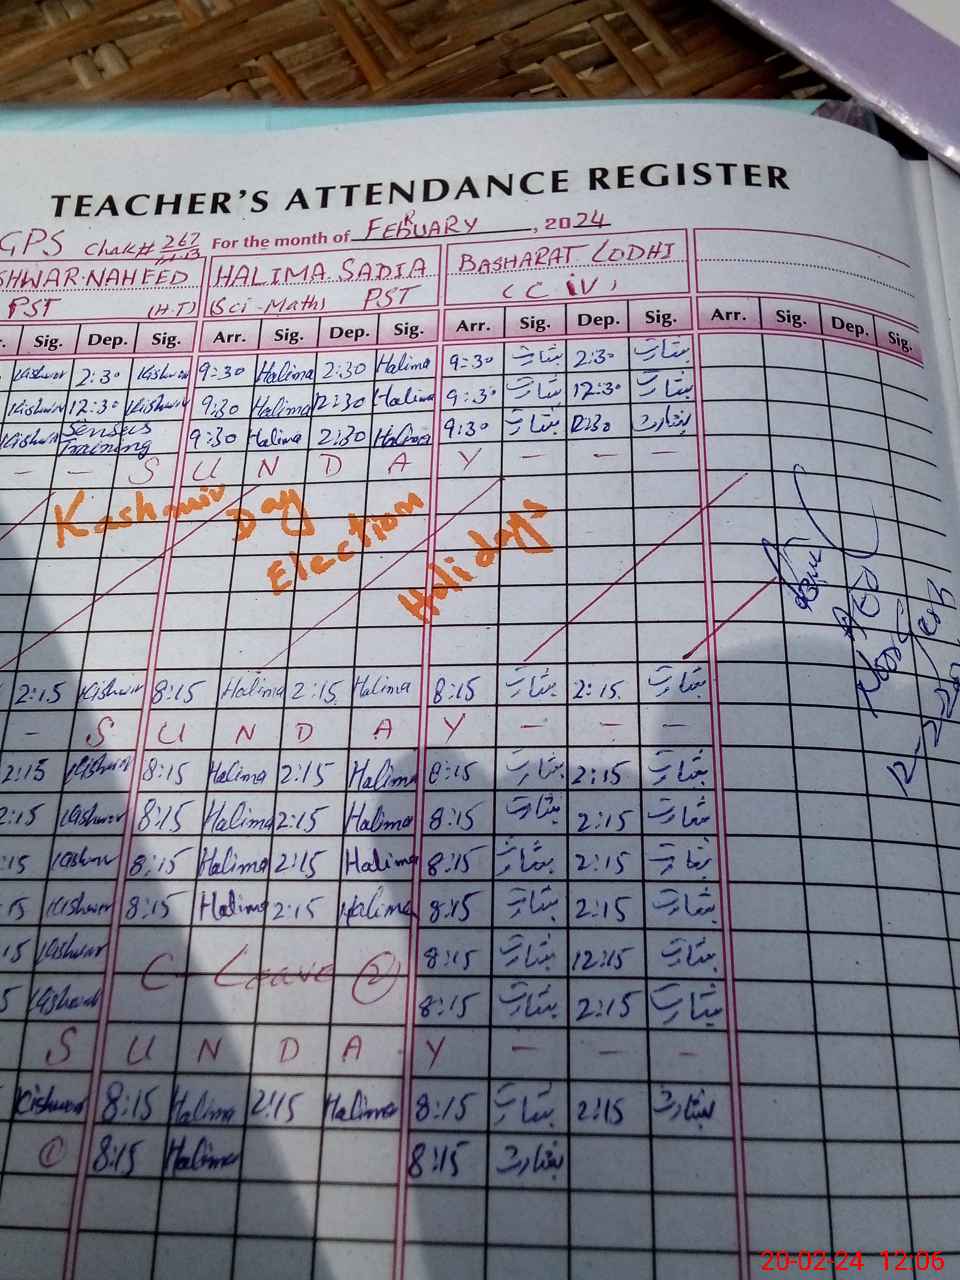 TEACHER'S ATTENDANCE REGISTER
GPS Chak# 267 For the month of FEBRUARY, 2024
SHWAR NAHEED HALIMA SADIA BASHARAT LODHI
PST (H-T) (Sci-Math) PST (C iV)
Sig. Dep. Sig. Arr. Sig. Dep. Sig. Arr. Sig. Dep. Sig. Arr. Sig. Dep. Sig.
Kishwar 2:30 Kishwar 9:30 Halima 2:30 Halima 9:30 بشارت 2:30 بشارت
Kishwar 12:30 Kishwar 9:30 Halima 12:30 Halima 9:30 بشارت 12:30 بشارت
Kishwar Senses Training 9:30 Halima 2:30 Halima 9:30 بشارت 12:30 بشارت
- - S U N D A Y - - -
Kashmir Day
Election
Holidays
2:15 Kishwar 8:15 Halima 2:15 Halima 8:15 بشارت 2:15 بشارت
- S U N D A Y - - -
2:15 Kishwar 8:15 Halima 2:15 Halima 8:15 بشارت 2:15 بشارت
2:15 Kishwar 8:15 Halima 2:15 Halima 8:15 بشارت 2:15 بشارت
:15 Kishwar 8:15 Halima 2:15 Halima 8:15 بشارت 2:15 بشارت
15 Kishwar 8:15 Halima 2:15 Halima 8:15 بشارت 2:15 بشارت
15 Kishwar C-Leave (2) 8:15 بشارت 12:15 بشارت
5 Kishwar 8:15 بشارت 2:15 بشارت
S U N D A Y - - -
Kishwar 8:15 Halima 2:15 Halima 8:15 بشارت 2:15 بشارت
8:15 Halima 8:15 بشارت
20-02-24 12:06